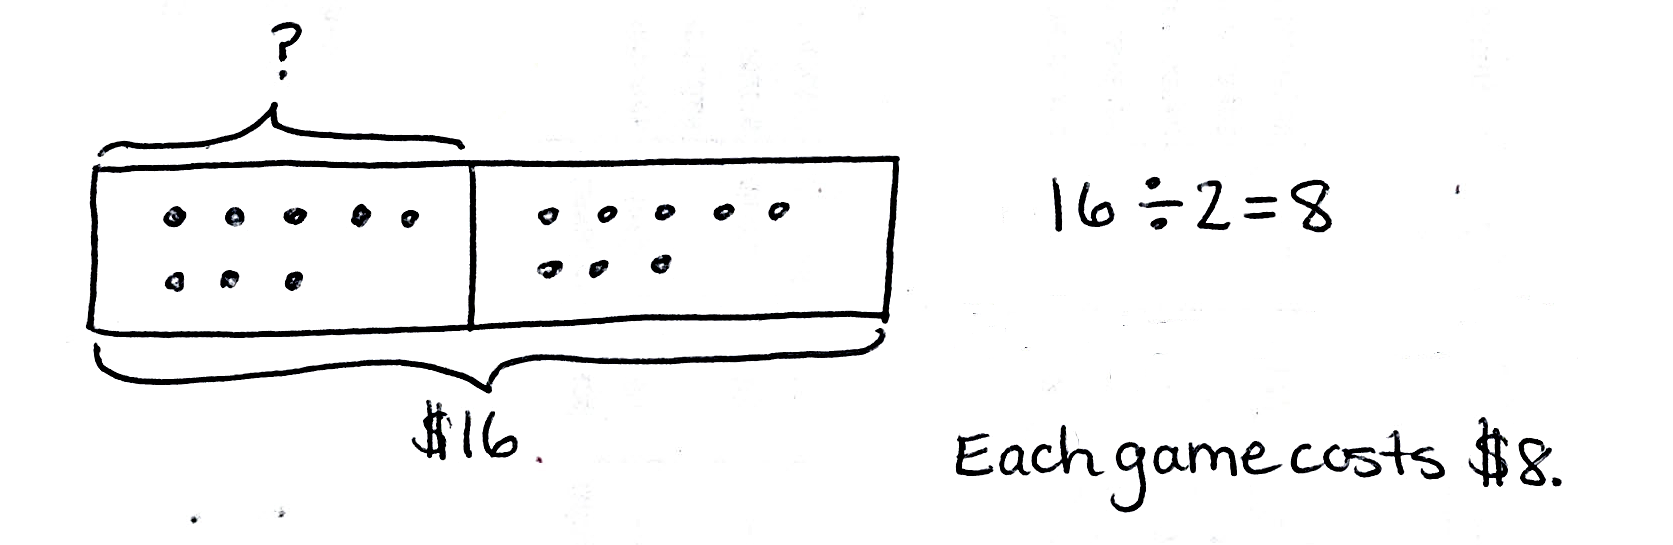 ?
16 ÷ 2 = 8
$16.
Each game costs $8.